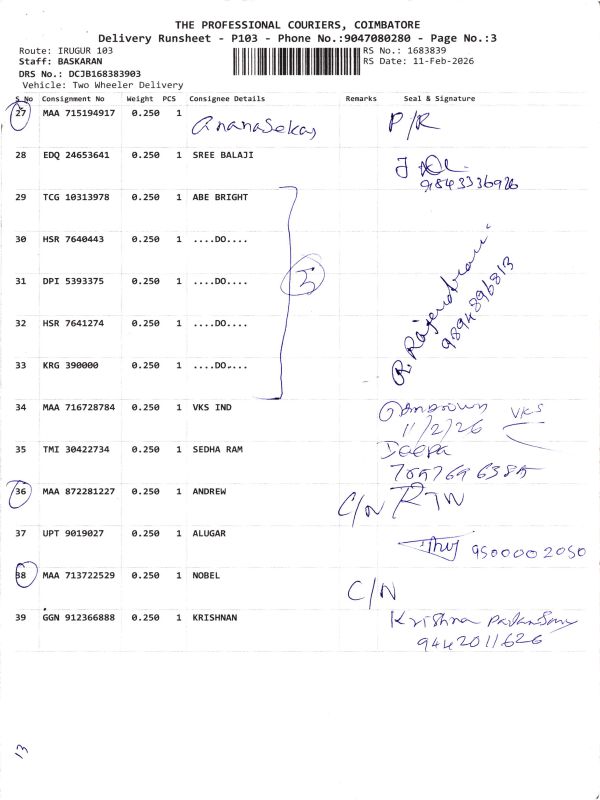 THE PROFESSIONAL COURIERS, COIMBATORE
Delivery Runsheet - P103 - Phone No.:9047080280 - Page No.:3
Route: IRUGUR 103 RS No.: 1683839
Staff: BASKARAN RS Date: 11-Feb-2026
DRS No.: DCJB168383903
Vehicle: Two Wheeler Delivery
S No Consignment No Weight PCS Consignee Details Remarks Seal & Signature
27 MAA 715194917 0.250 1 Gnanasekar P/R
28 EDQ 24653641 0.250 1 SREE BALAJI
9843336926
29 TCG 10313978 0.250 1 ABE BRIGHT
30 HSR 7640443 0.250 1 ....DO....
31 DPI 5393375 0.250 1 ....DO.... 5
32 HSR 7641274 0.250 1 ....DO....
33 KRG 390000 0.250 1 ....DO....
R. Rajendran
9894896813
34 MAA 716728784 0.250 1 VKS IND VKS
11/2/26
35 TMI 30422734 0.250 1 SEDHA RAM Deepa
36 MAA 872281227 0.250 1 ANDREW C/N RTN
37 UPT 9019027 0.250 1 ALUGAR 9500002050
38 MAA 713722529 0.250 1 NOBEL C/N
39 GGN 912366888 0.250 1 KRISHNAN Krishna
9442011626
13